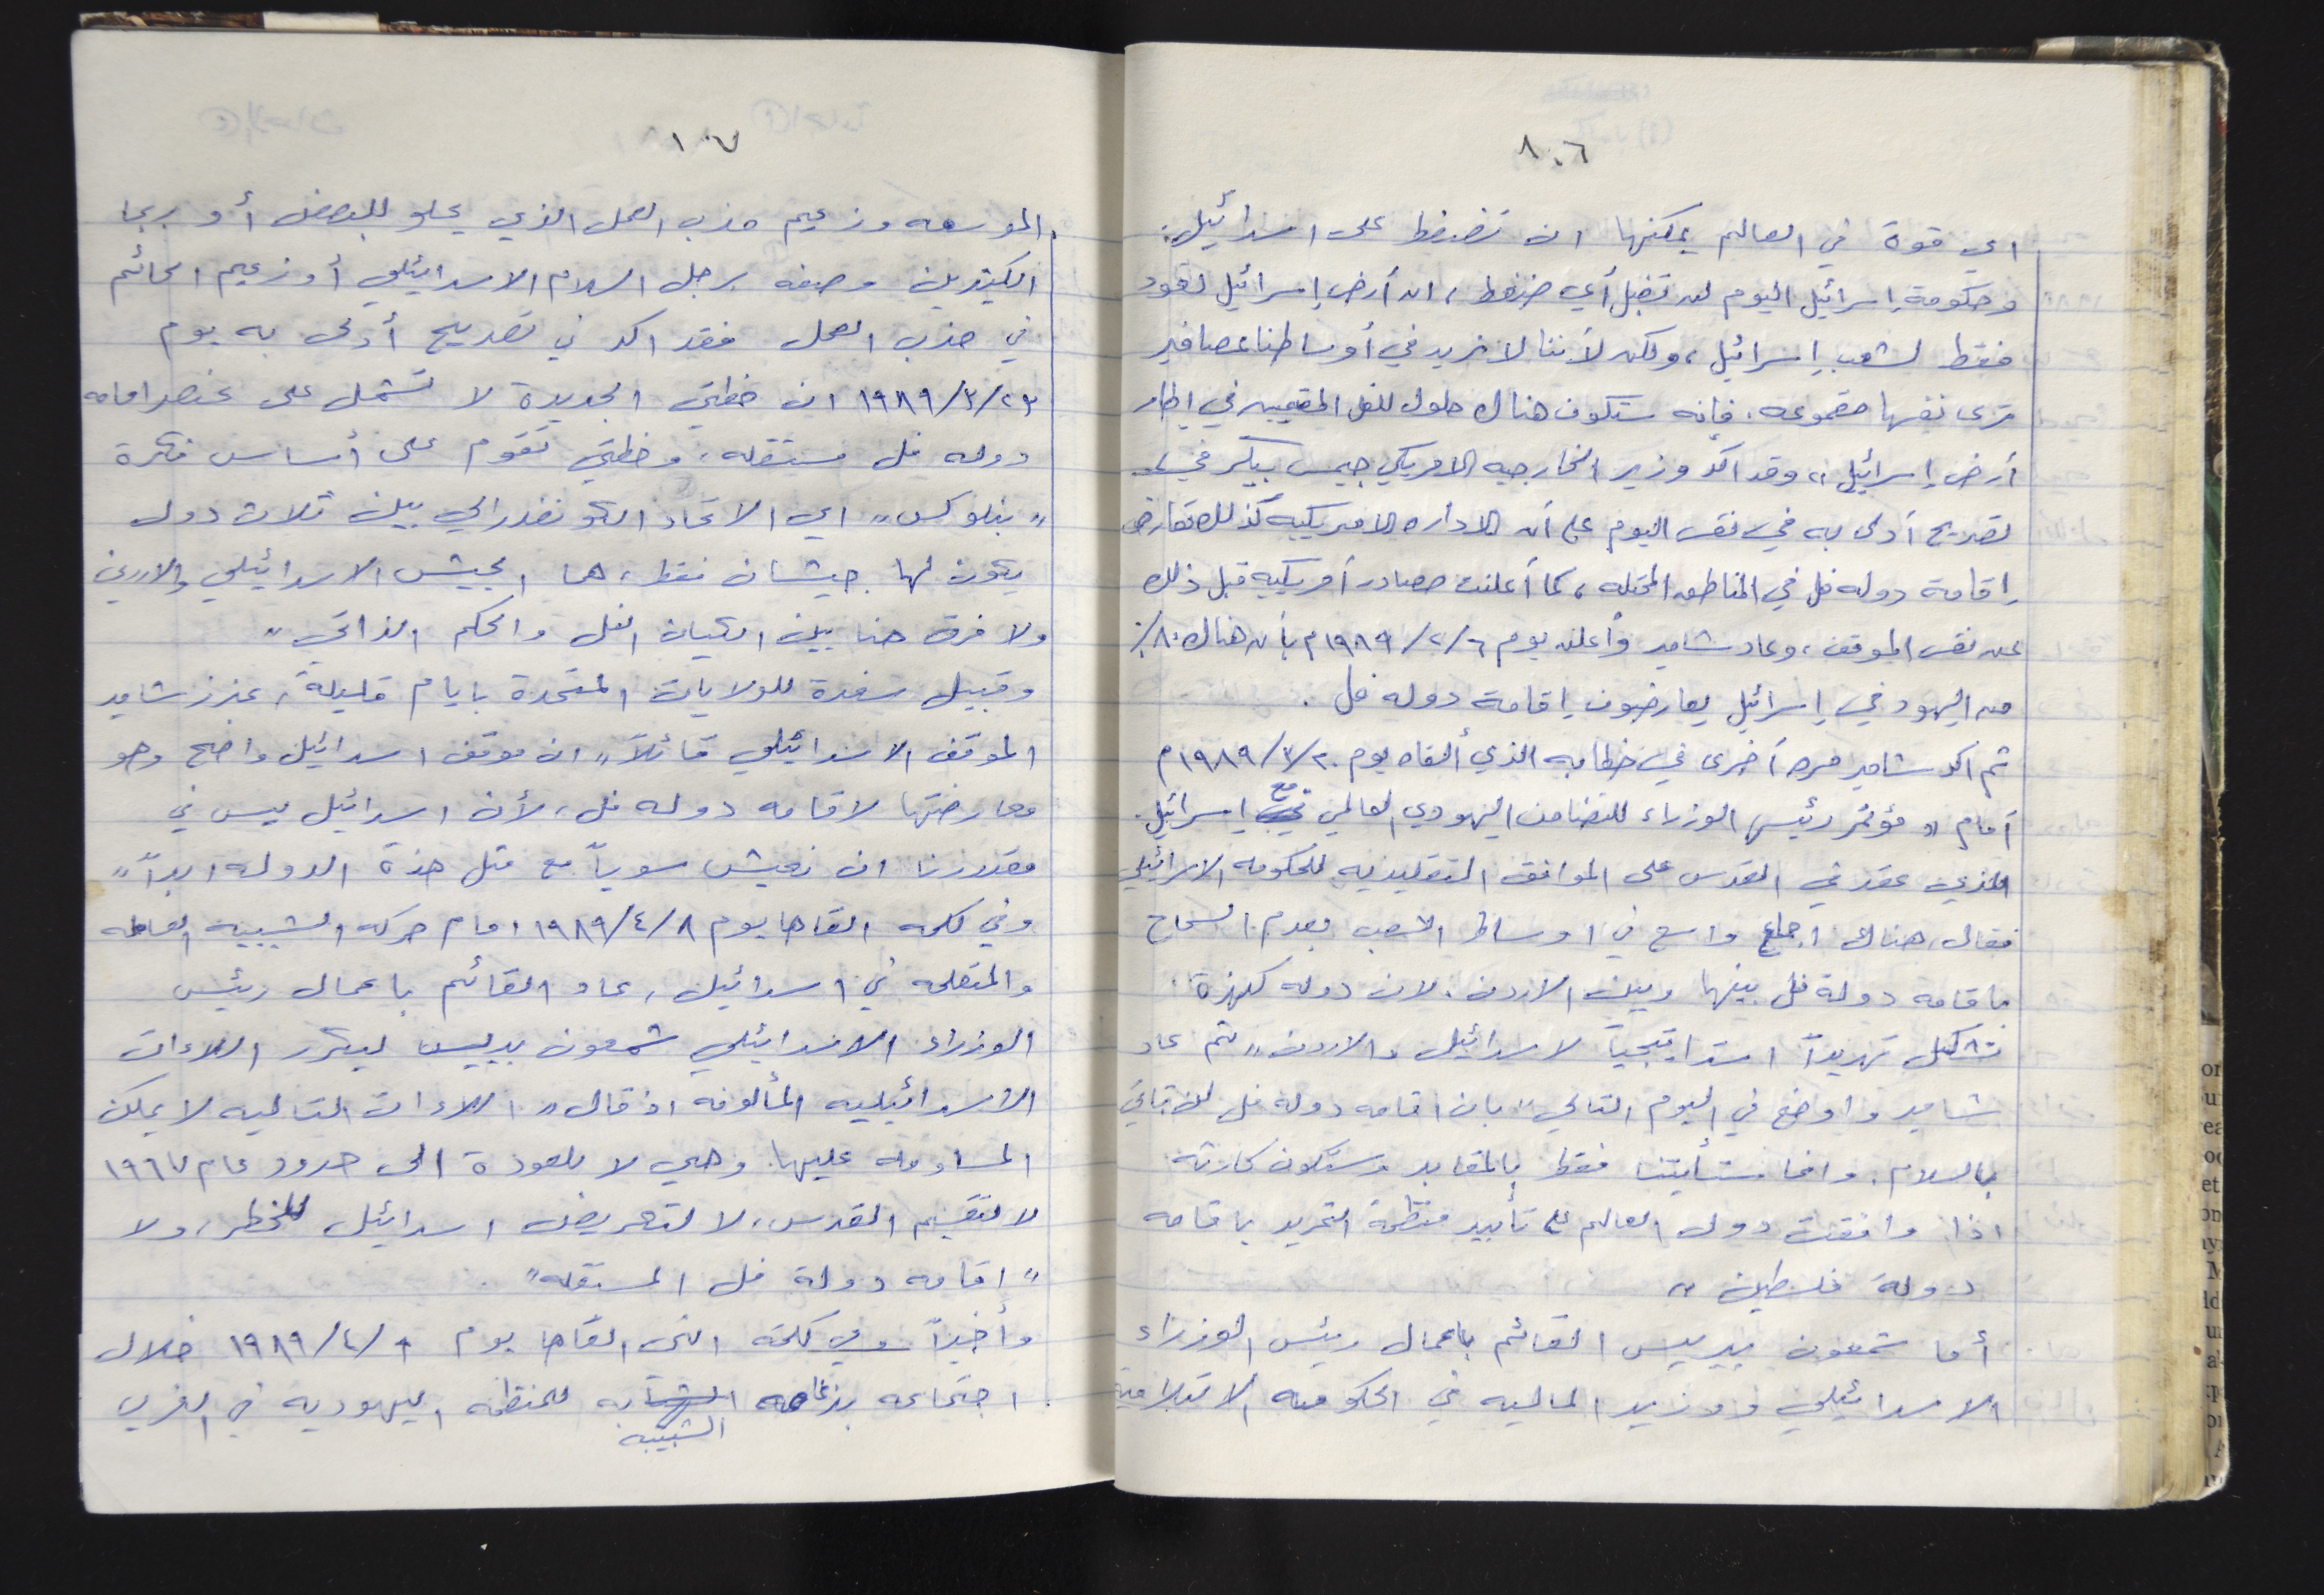 ٨٠٦
اي قوة في العالم يمكنها ان تضغط على اسرائيل.
وحكومة إسرائيل اليوم لن تقبل أي ضغط، ان أرض إسرائيل تعود
فقط لشعب إسرائيل، ولكن لأننا لا نريد في أوساطنا عصافير
ترى نفسها مقموعه. فإنه ستكون هناك حلول للفل المقيمين في اطار
أرض إسرائيل،، وقد اكد وزير الخارجيه الامريكي جيمس بيكر في
تصريح أدلى به في نفس اليوم على أن الاداره الامريكيه كذلك تعارض
إقامة دوله فل في المناطق المحتله، كما أعلنت مصادر أمريكيه قبل ذلك
عن نفس الموقف، وعاد شامير وأعلن يوم ٦/٢/١٩٨٩م بأن هناك ٨٠٪
من اليهود في إسرائيل يعارضون إقامة دوله فل.
ثم اكد شامير مره أخرى في خطابه الذي ألقاه يوم ٢٠/٣/١٩٨٩م
أمام ،، مؤتمر رئيس الوزراء للتضامن اليهودي العالمي مع إسرائيل.
الذي عقد في القدس على المواقف التقليديه للحكومه الاسرائيلي
فقال، هناك اجماع واسع في اوساط الشعب بعدم السماح
باقامه دولة فل بينها وبين الاردن. لان دوله كهذة
تشكل تهديداً استراتيجياً لاسرائيل والاردن،، ثم عاد
شامير واوضح في اليوم التالي،، بان اقامه دولة فل لن تأتي
بالسلام. وانما ستأتينا فقط بالمقابر وستكون كارثة
اذا وافقت دول العالم على تأييد منظمة التحرير باقامه
دولة فلسطين،،
أما شمعون بيريس القائم باعمال رئيس الوزراء
الاسرائيلي ووزير الماليه في الحكومه الائتلافية
١٠٧
الموسعه وزعيم حزب العمل الذي يحلو للبعض أو ربما
الكثيرين وصفه برجل السلام الاسرائيلي أو زعيم الحمائم
في حزب العمل فقد اكد في تصريح أدلى به يوم
٢٣/٣/١٩٨٩ ان خطتي الجديدة لا تشمل على عنصر اقامه
دوله فل مستقله، وخطتي تقوم على أساس فكرة
،، بنلوكس،، اي الاتحاد الكونفدرالي بين ثلاث دول
يكون لها جيشان فقط، هما الجيش الاسرائيلي والاردني
ولا فرق هنا بين الكيان الفل والحكم الذاتي،،
وقبيل سفرة للولايات المتحدة بايام قليلة، عزز شامير
الموقف الاسرائيلي قائلاً،، ان موقف اسرائيل واضح وهو
معارضتها لاقامه دوله فل، لأن اسرائيل ليس في
مقدورنا ان نعيش سوياً مع مثل هذة الدوله ابداً،،
وفي كلمه القاها يوم ٨/٤/١٩٨٩ امام حركه الشبيبه العامله
والمتعلمه في اسرائيل، عاد القائم باعمال رئيس
الوزراء الاسرائيلي شمعون بيريس ليكرر اللاءات
الاسرائيليه المألوفه اذ قال،، اللاءات التاليه لا يمكن
المساومة عليها. وهي لا للعودة الى حدود عام ١٩٦٧
لا لتقسيم القدس، لا لتعريض اسرائيل للخطر، ولا
،، اقامه دولة فل المستقله،،
وأخيراً وفي كلمة التي القاها يوم /٤/١٩٨٩ خلال
اجتماعه بزعامه الشبيبه للمنظمه اليهوديه في الغرب